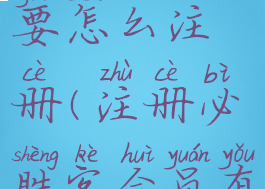 要怎么注
cè zhù cè bì
册(注册必
shèng kè huì yuán yǒu
胜客会员有